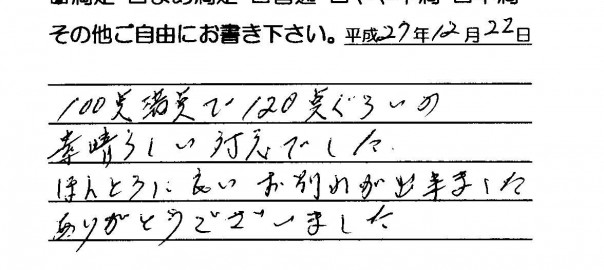 ■満足 □まあ満足 □普通 □やや不満 □不満
その他ご自由にお書き下さい。平成27年12月22日
100点満点で120点ぐらいの
素晴らしい対応でした
ほんとうに良いお別れが出来ました
ありがとうございました